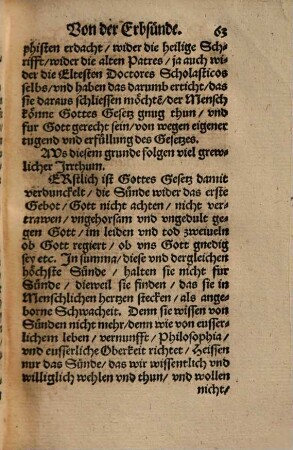 Von der Erbsünde. 63
phisten erdacht/ wider die heilige Sch-
rifft/ wider die alten Patres/ ja auch wi-
der die Eltesten Doctores Scholasticos
selbs/ vnd haben das darumb erticht/ das
sie daraus schliessen möchts/ der Mensch
könne Gottes Gesetz gnug thun/ vnd
fur Gott gerecht sein/ von wegen eigener
tugend vnd erfüllung des Gesetzes.
AVs diesem grunde folgen viel grew-
licher Jrrthum.
ERstlich ist Gottes Gesetz damit
verdunckelt/ die Sünde wider das erste
Gebot/ Gott nicht achten/ nicht ver-
trawen/ vngehorsam vnd vngedult ge-
gen Gott/ im leiden vnd tod zweiueln
ob Gott regiert/ ob vns Gott gnedig
sey etc. Jn summa/ diese vnd dergleichen
höchste Sünde/ halten sie nicht fur
Sünde/ dieweil sie finden/ das sie in
Menschlichen hertzen stecken/ als ange-
borne Schwacheit. Denn sie wissen von
Sünden nicht mehr/ denn wie von eusser-
lichem leben/ vernunfft/ Philosophia/
vnd eusserliche Oberkeit richtet/ Heissen
nur das Sünde/ das wir wissentlich vnd
williglich wehlen vnd thun/ vnd wollen
nicht/